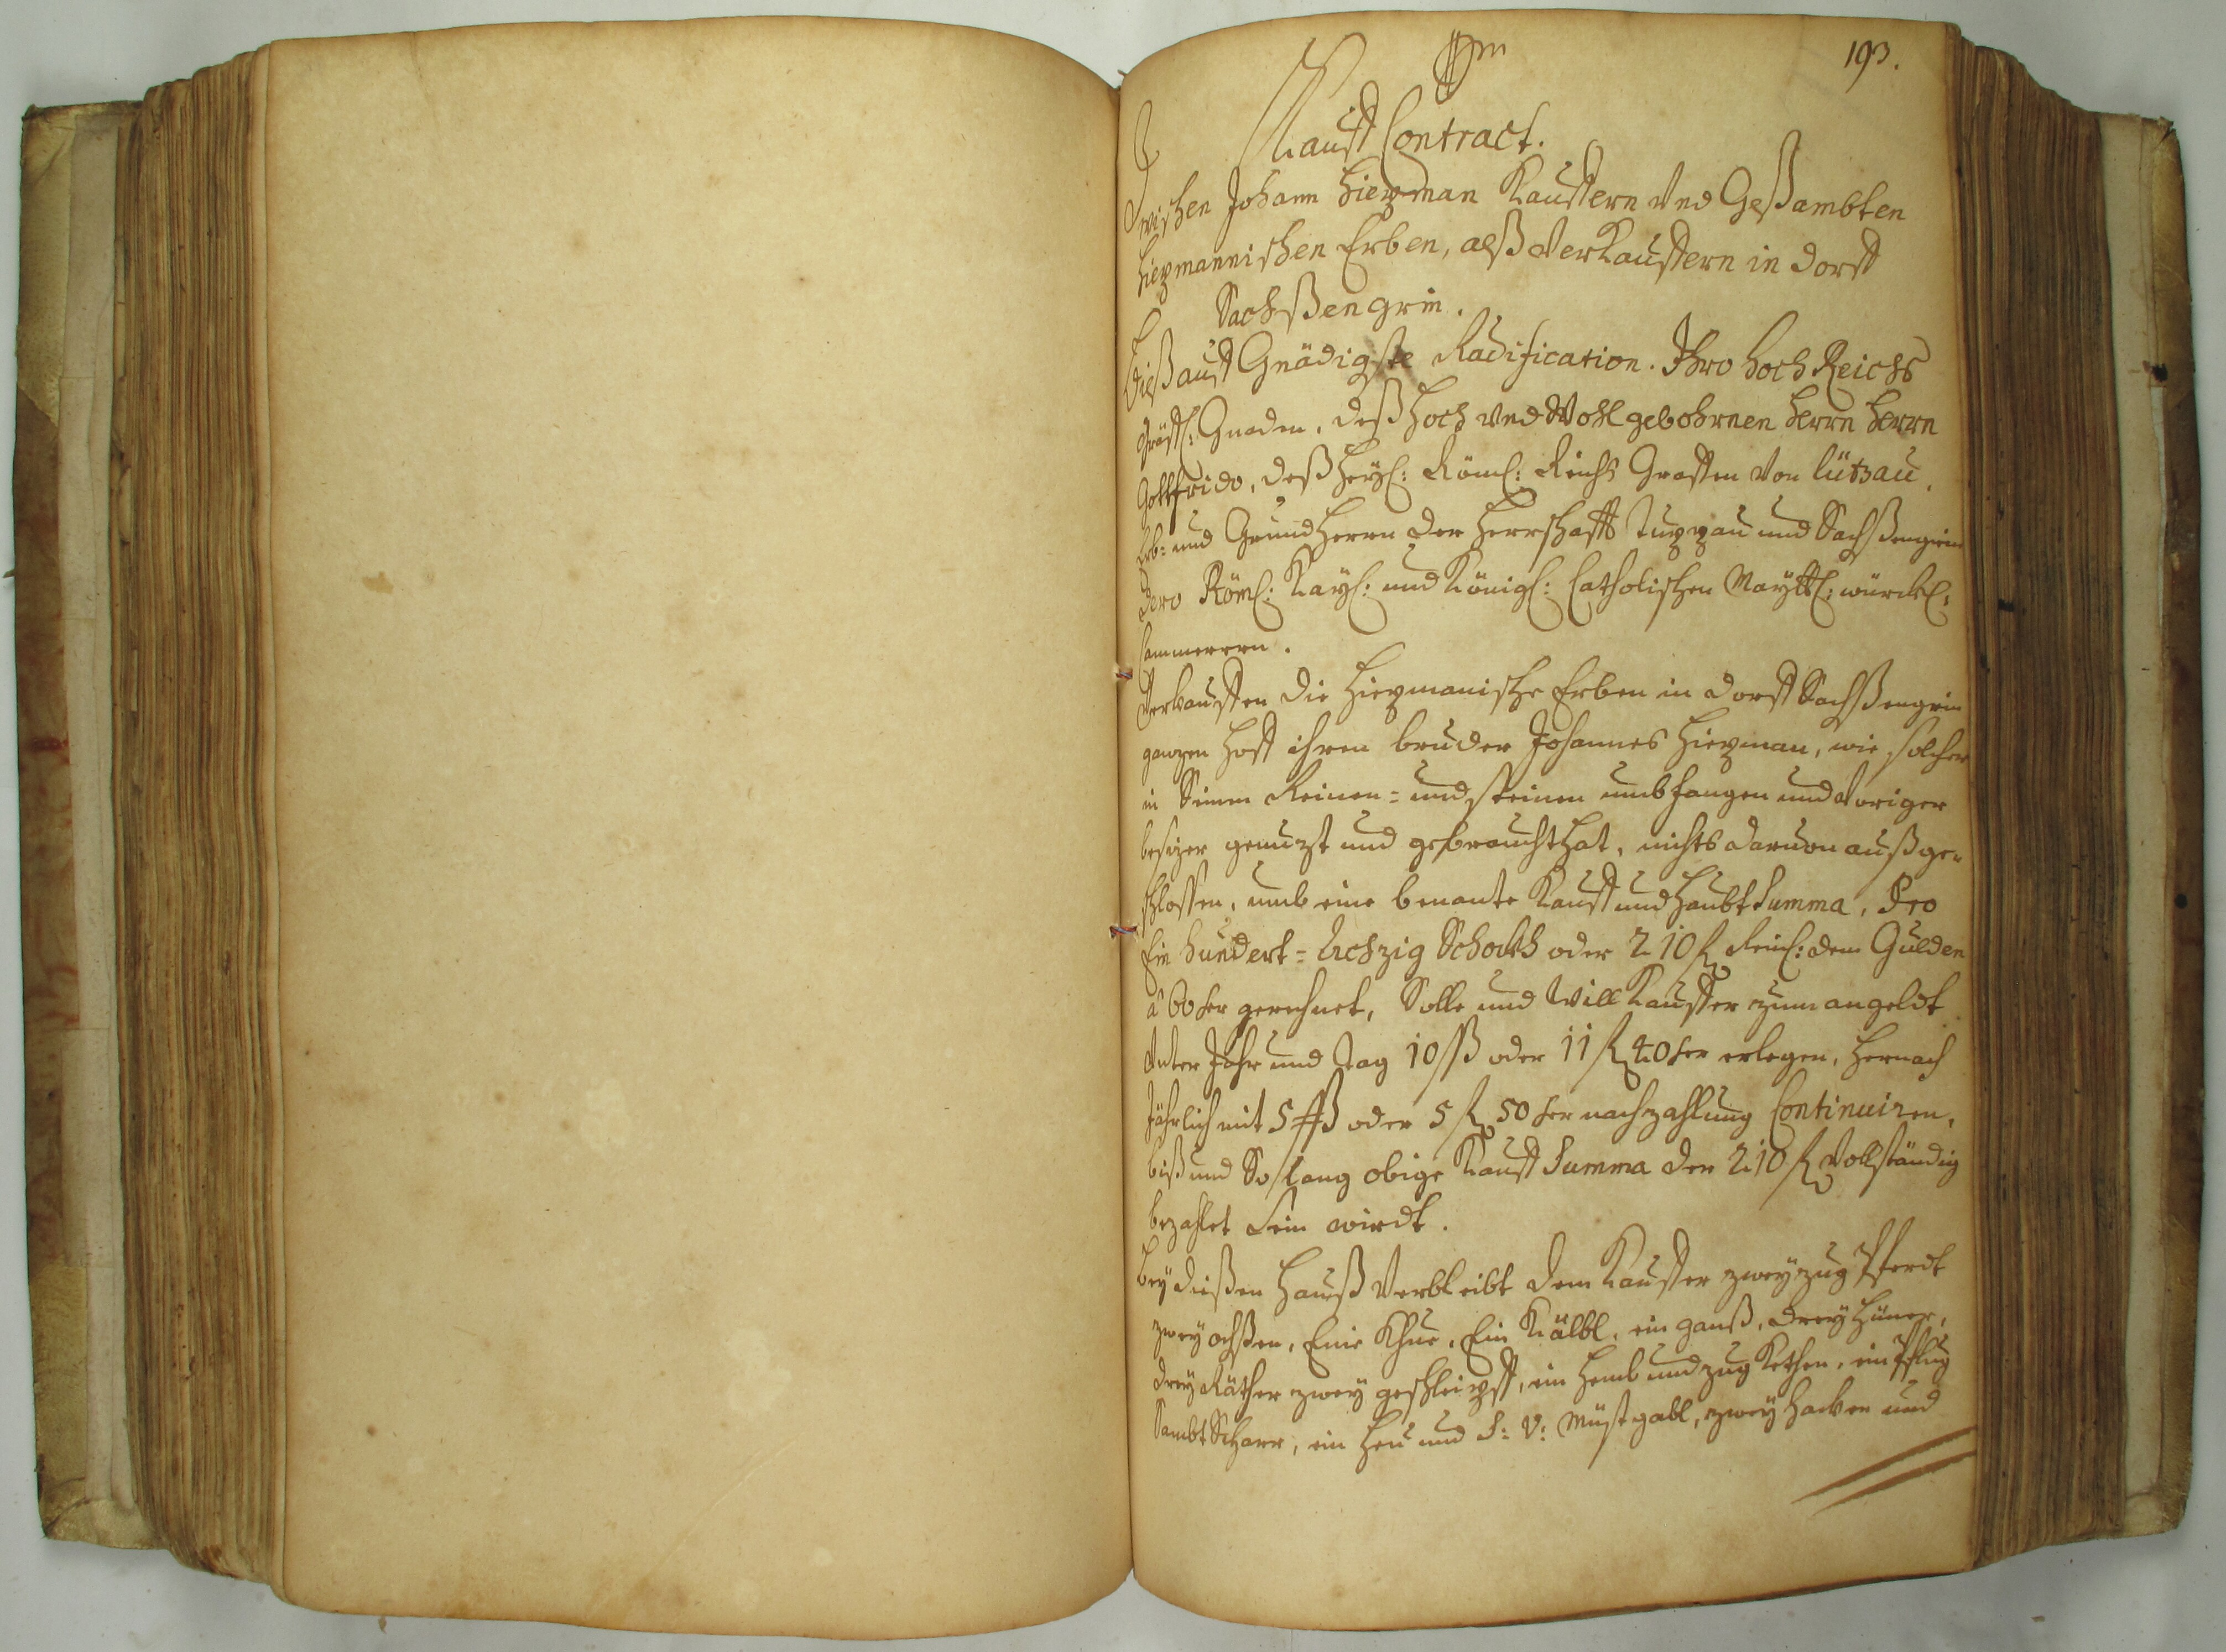 193.
Kauff Contract.
Zwischen Johann Hiezman Kauffern Vnd Geßambten
Hiezmannischen Erben, alß Verkauffern in dorff
Sachßengrin.
Dieß auff Gnädigste Radification. Ihro Hoch Reichs
Gräffl: Gnaden, deß Hoch vnd Wohl gebohrnen Herrn Herrn
Gottfrido, deß Heyl: Röml: Reichs Graffen von Lützau,
Erb- und Grundherrn der Herrschafft Tuppau und Sachßengrin
Dero Röml: Kayl: und Königl: Catholischen Maytt: würckl:
Cammerern.
Verkauffen die Hiezmanische Erben in dorff Sachßengrin
ganzen Hoff ihren bruder Johannes Hiezman, wie solcher
in Seinen Reinen- und steinen umbfangen und Voriger
besizer genuzt und gebraucht hat, nichts daruon außge-
schlossen, umb eine benante Kauff und Haubt Summa, Pro
Ein hundert- Achzig Schockh oder 210 fl Reinl: dem Gulden
â 60 xer gerechnet, Solle und will Kauffer zum angeldt
Vnter Jahr und tag 10 ßß oder 11 fl 40 xer erlegen, hernach
Jährlich mit 5 ßß oder 5 fl 50 xer nachzahlung Continuiren,
biß und So lang obige Kauff Summa der 210 fl Vollständig
bezahlet Sein wirdt.
Bey dießen Hauß Verbleibt dem Kauffer zwey zug Pferdt
zwey ochßen, Eine Khue, Ein Kälbl, ein ganß, drey Hüner,
drey Räther zwey geschleipfft, ein Hemb und zug Kethen, ein Pflug
Sambt Scharr, ein Heu und S: V: Mistgabl, zwey Hacken und